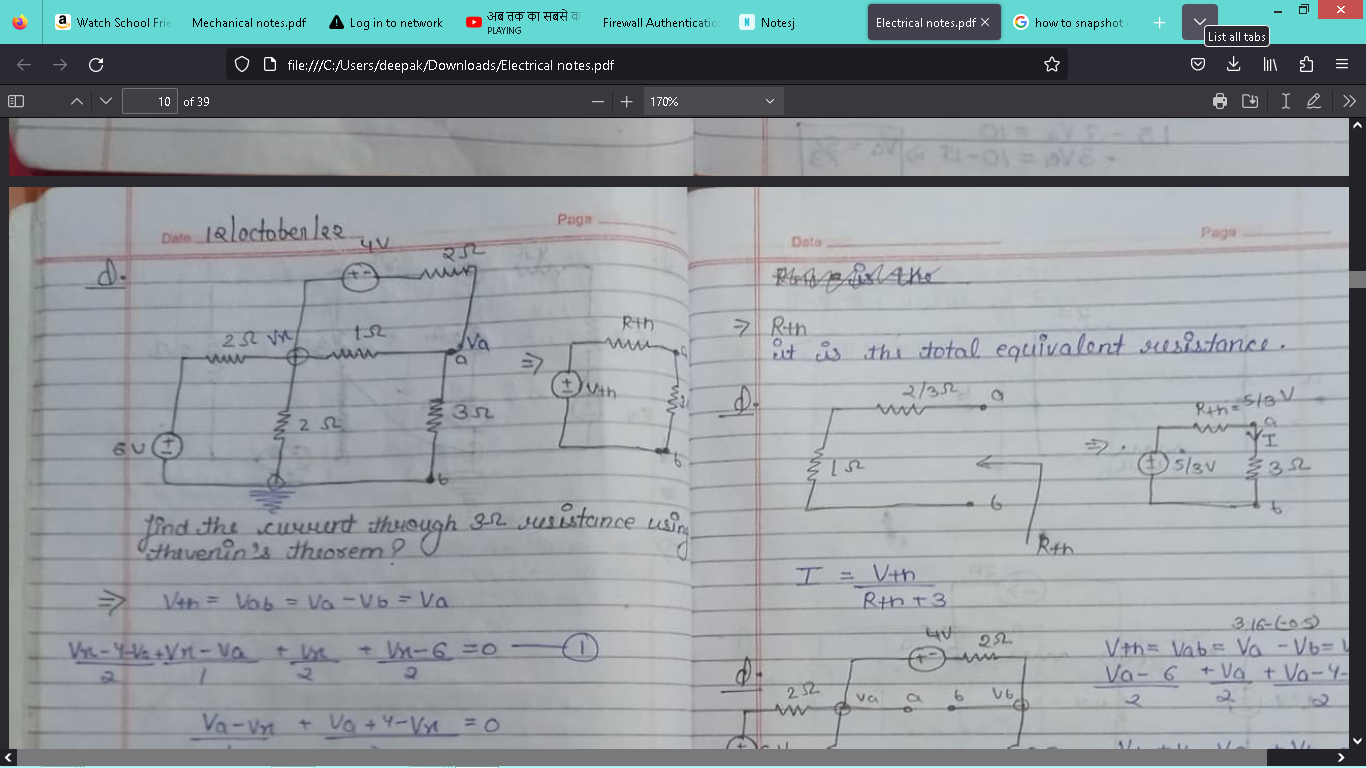 Watch School Frie
Mechanical notes.pdf
Log in to network
अब तक का सबसे क
PLAYING
Firewall Authenticatio
N Notesj
Electrical notes.pdf
how to snapshot
List all tabs
file:///C:/Users/deepak/Downloads/Electrical notes.pdf
10 of 39
170%
3Va = 10-15
Date 12/october/22
Page
4V
2Ω
2Ω Vx 1Ω Va
a
2Ω
3Ω
6V
b
Rth
a
Vth
b
find the current through 3Ω resistance using
thevenin's theorem?
⇒ Vth = Vab = Va - Vb = Va
Vx-4-Va/2 + Vx-Va/1 + Vx/2 + Vx-6/2 = 0 — ①
Va-Vx + Va+4-Vx = 0
Date
Page
⇒ Rth
it is the total equivalent resistance.
2/3Ω a
1Ω
b
Rth
Rth = 5/3V
a
I
5/3V
3Ω
b
I = Vth/Rth+3
3.16-(-0.5)
4V 2Ω
2Ω Va a b Vb
Vth = Vab = Va - Vb =
Va-6/2 + Va/2 + Va-4-/2